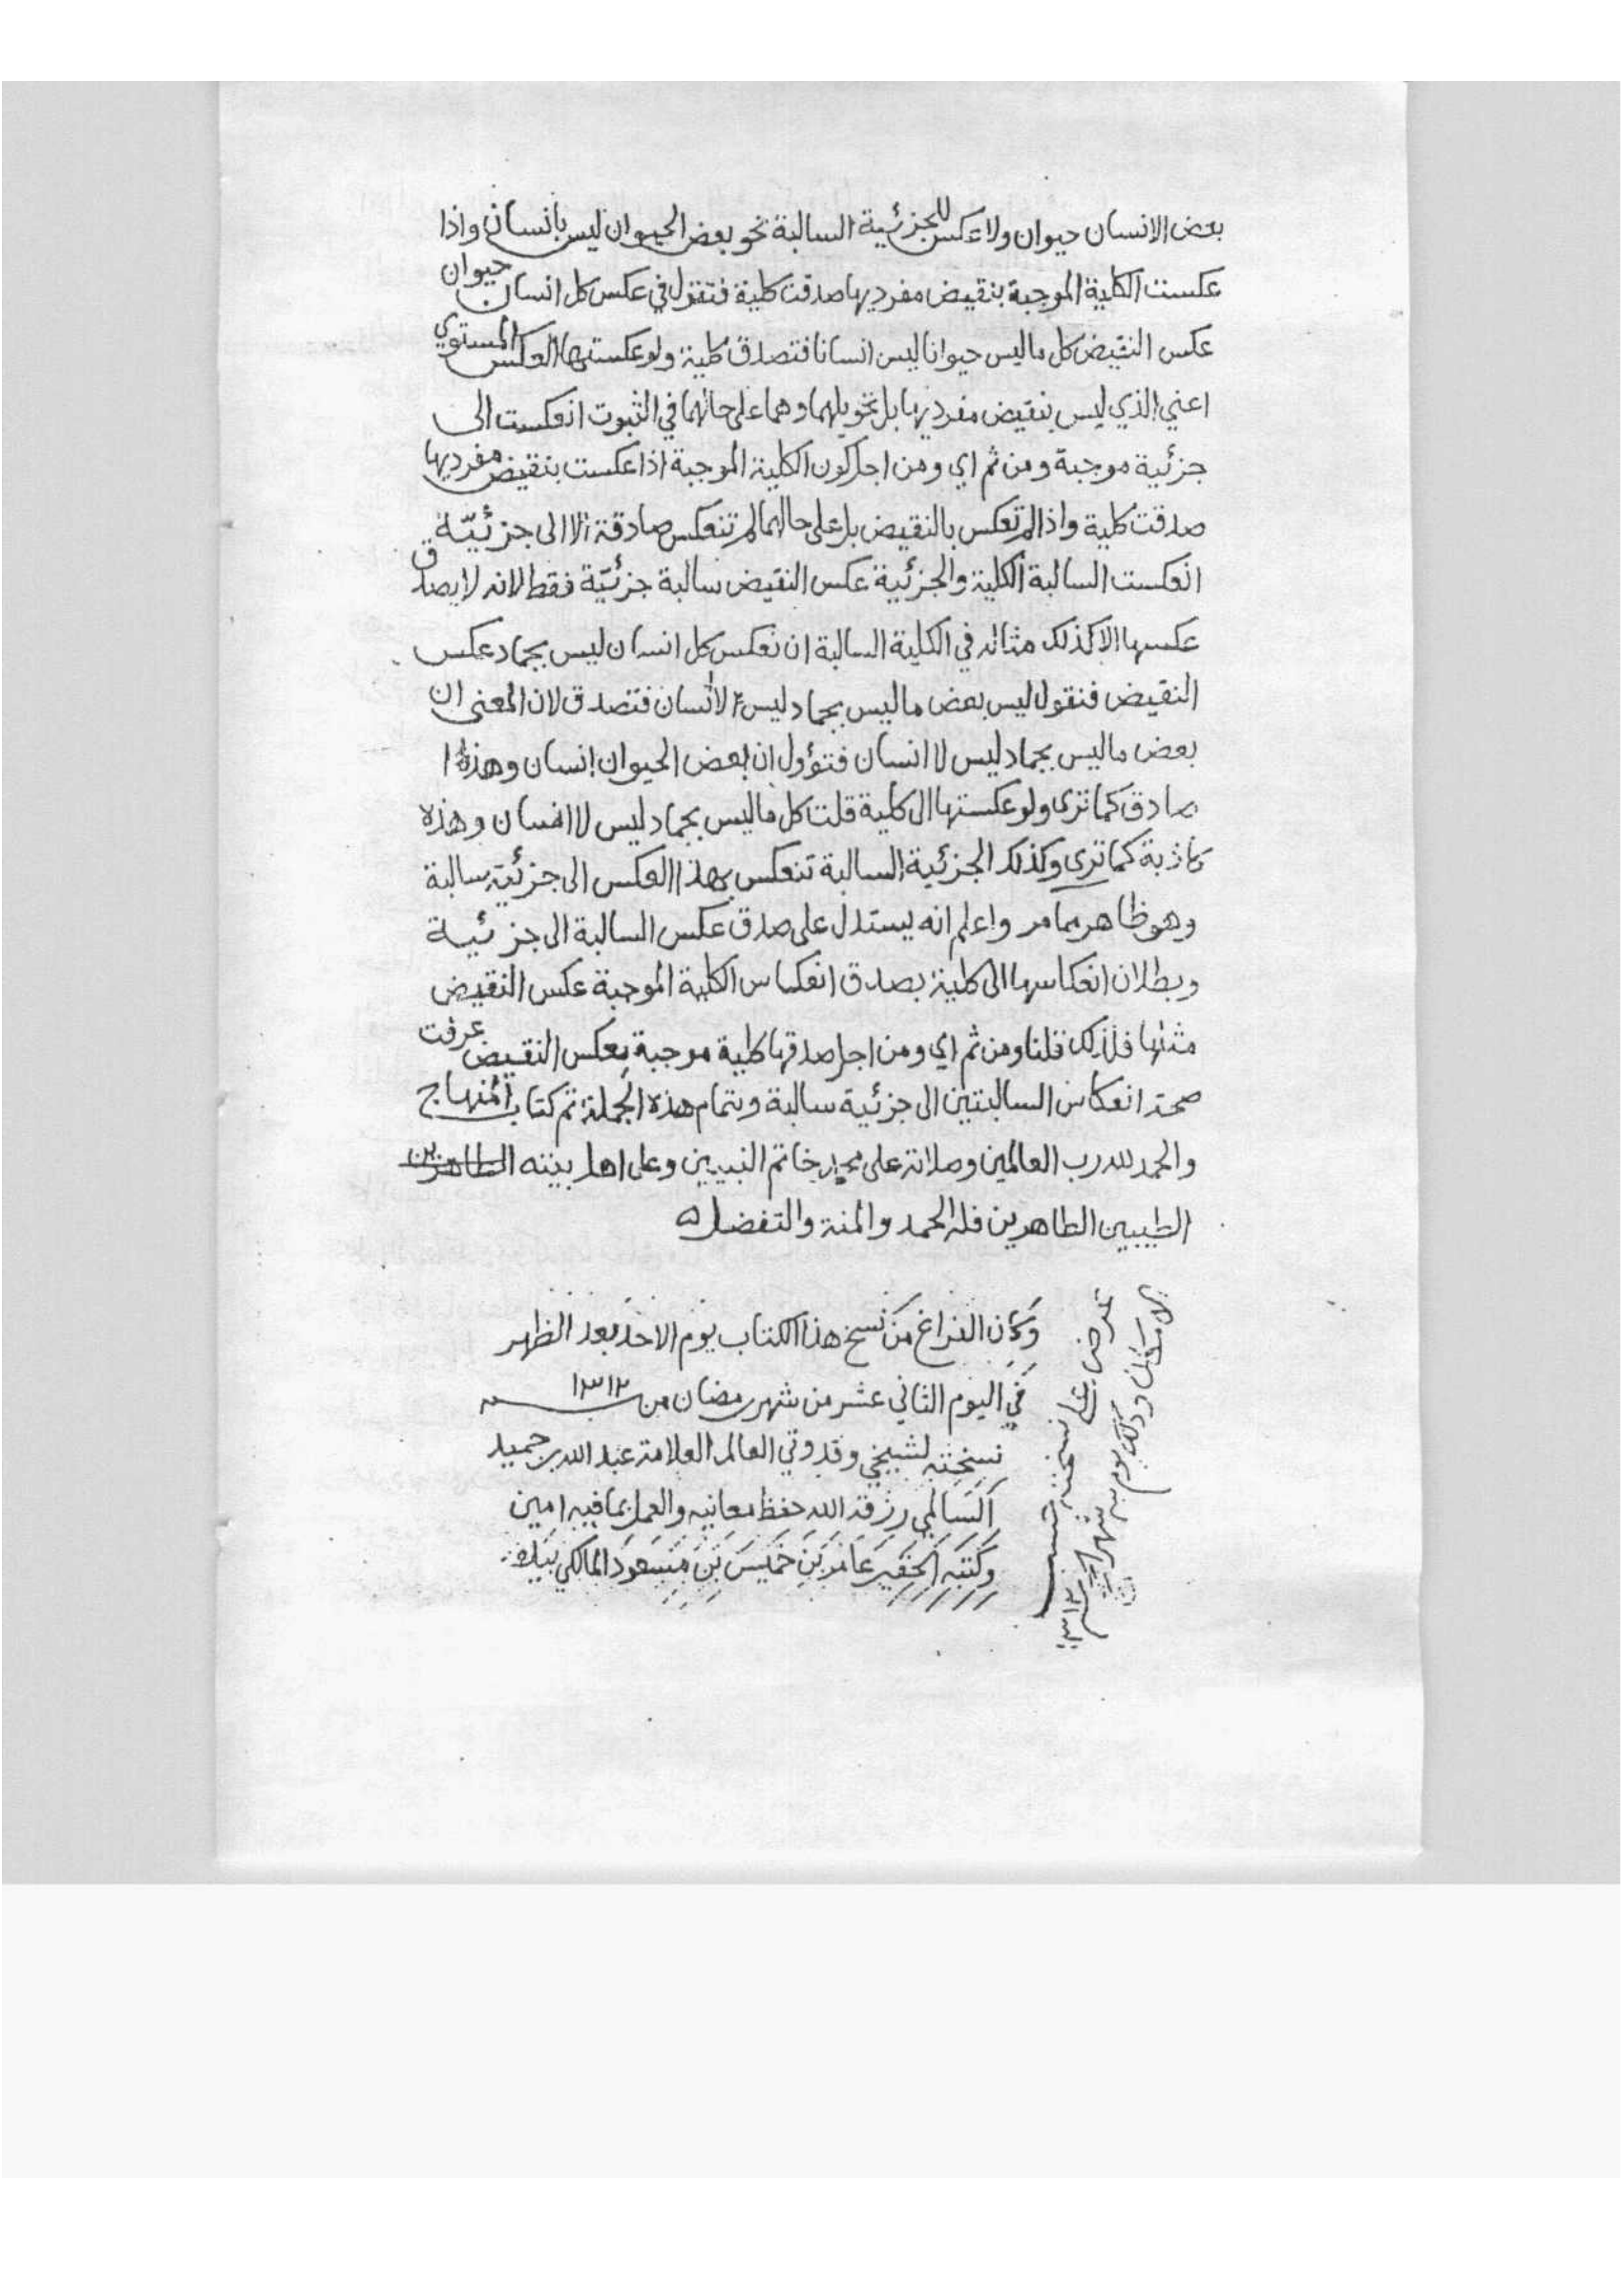 بعض الانسان حيوان ولا عكس للجزئية السالبة نحو بعض الحيوان ليس بانسان واذا
عكست الكلية الموجبة بنقيض مفرديها صدقت كلية فتقول في عكس كل انسان حيوان
عكس النقيض كل ما ليس حيوانا ليس انسانا فتصدق كلية ولو عكستها العكس المستوي
اعني الذي ليس بنقيض مفرديها بل بتحويلهما وهما على حالهما في الثبوت انعكست الى
جزئية موجبة ومن ثم اي ومن اجل كون الكلية الموجبة اذا عكست بنقيض مفرديها
صدقت كلية واذا لم تعكس بالنقيض بل على حالهما لم تنعكس صادقة الا الى جزئيّة
انعكست السالبة الكلية والجزئية عكس النقيض سالبة جزئيّة فقط لانه لا يصدق
عكسها الا كذلك مثاله في الكلية السالبة ان نعكس كل انسان ليس بجماد عكس
النقيض فنقول ليس بعض ما ليس بجماد ليس لا انسان فتصدق لان المعنى ان
بعض ما ليس بجماد ليس لا انسان فتؤول ان بعض الحيوان انسان وهذا
صادق كما ترى ولو عكستها الى كلية قلت كل ما ليس بجماد ليس لا انسان وهذه
كاذبة كما ترى وكذلك الجزئية السالبة تنعكس بهذا العكس الى جزئيّة سالبة
وهو ظاهر مما مر واعلم انه يستدل على صدق عكس السالبة الى جزئية
وبطلان انعكاسها الى كلية بصدق انعكاس الكلية الموجبة عكس النقيض
مثلها فلذلك قلنا ومن ثم اي ومن اجل صدقها كلية موجبة بعكس النقيض عرفت
صحة انعكاس السالبتين الى جزئية سالبة وبتمام هذه الجملة تم كتاب المنهاج
والحمد لله رب العالمين وصلاته على محمد خاتم النبيين وعلى اهل بيته الطاهرين
الطيبين الطاهرين فله الحمد والمنة والتفضل
وكان الفراغ من نسخ هذا الكتاب يوم الاحد بعد الظهر
في اليوم الثاني عشر من شهر رمضان من سنه ١٣١٢
نسخته لشيخي وقدوتي العالم العلامة عبد الله بن حميد
السالمي رزقه الله حفظ معانيه والعمل بما فيه امين
وكتبه الحقير عامر بن خميس بن مسعود المالكي بيده
عرض على نسخته حسب
الامكان وذلك يوم شهر
١٣١٢